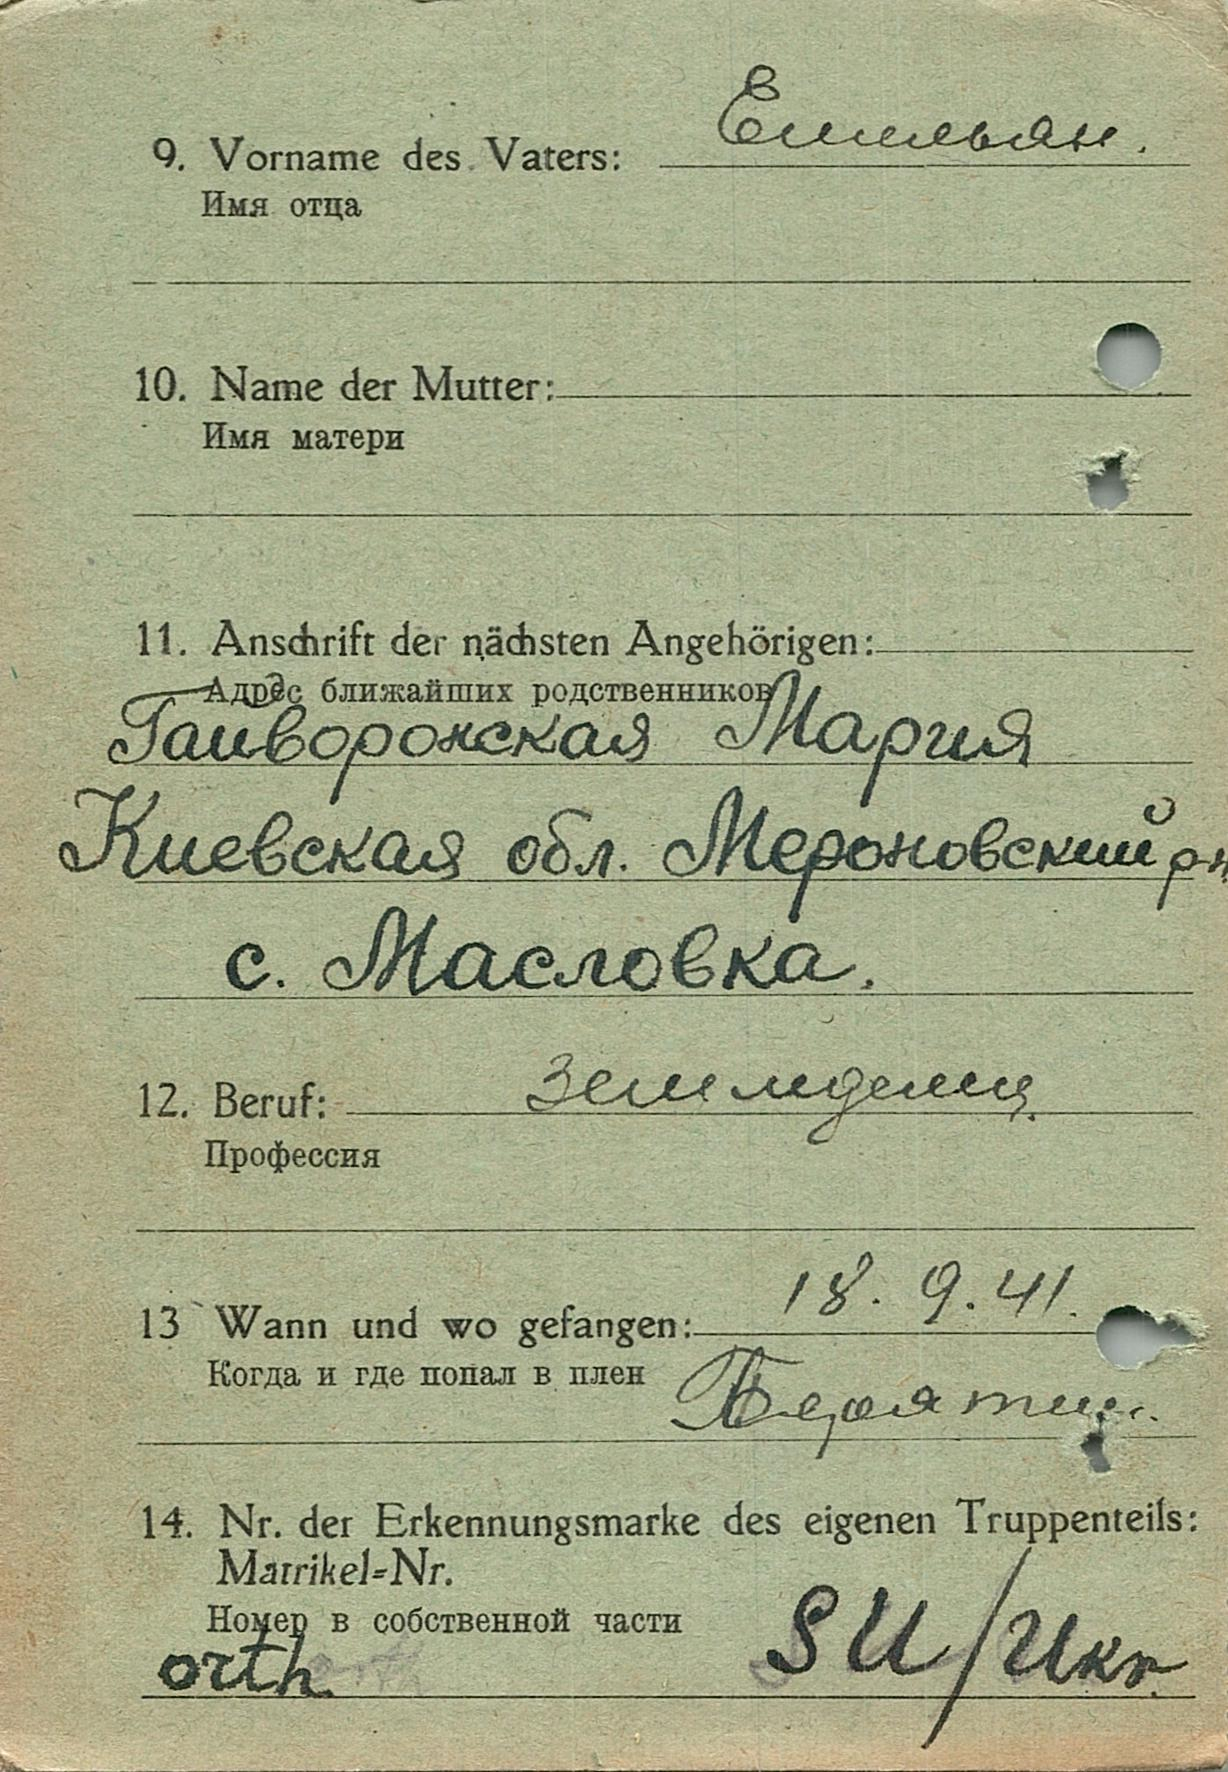 Емильян.
9. Vorname des Vaters:
Имя отца
10. Name der Mutter:
Имя матери
11. Anschrift der nächsten Angehörigen:
Адрес ближайших родственников
Гайворонская Мария
Киевская обл. Мероновский р-н
с. Масловка.
12. Beruf: земледелец
Профессия
13 Wann und wo gefangen: 18. 9. 41.
Когда и где попал в плен
14. Nr. der Erkennungsmarke des eigenen Truppenteils:
Matrikel=Nr.
Номер в собственной части
orth. SU/Ukr.